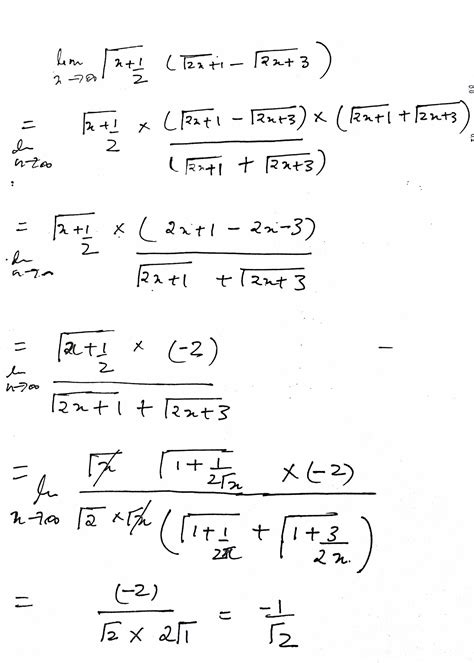 lim x→∞ √(x+1/2) (√(2x+1) − √(2x+3))
= lim x→∞ √(x+1/2) × (√(2x+1) − √(2x+3)) × (√(2x+1) + √(2x+3)) / (√(2x+1) + √(2x+3))
= lim x→∞ √(x+1/2) × (2x+1 − 2x−3) / √(2x+1) + √(2x+3)
= lim x→∞ √(x+1/2) × (−2) / √(2x+1) + √(2x+3)
= lim x→∞ √x √(1+1/2√x) × (−2) / √2 × √x (√(1+1/2x) + √(1+3/2x))
= (−2) / √2 × 2√1 = −1/√2